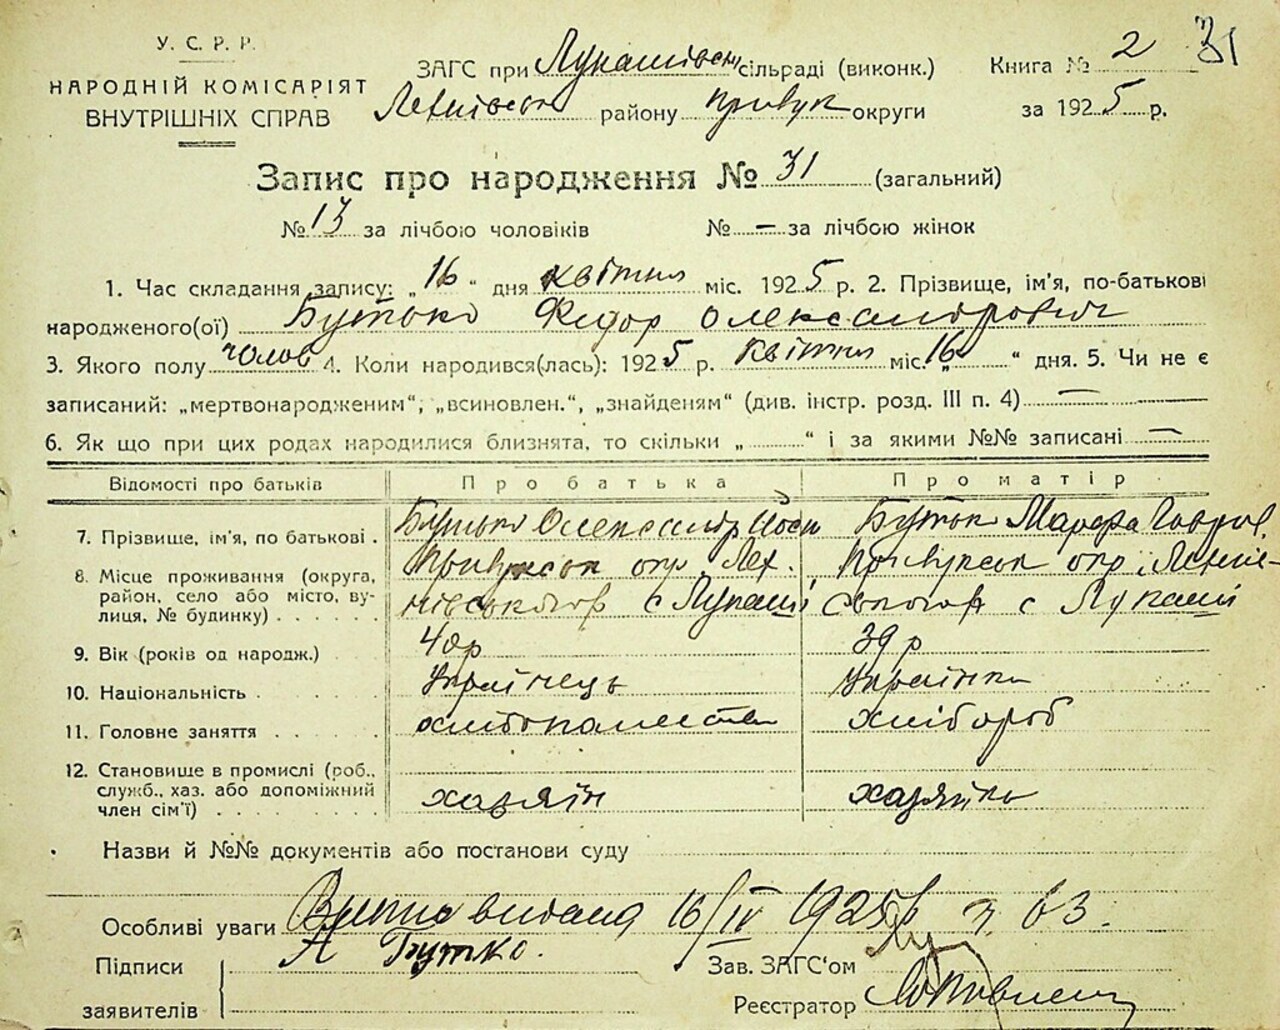 У. С. Р. Р.
НАРОДНІЙ КОМІСАРІЯТ
ВНУТРІШНІХ СПРАВ
ЗАГС при Лукашівській сільраді (виконк.)
Ленінськ району прилук округи
Книга № 2 31
за 1925 р.
Запис про народження № 31 (загальний)
№ 13 за лічбою чоловіків № — за лічбою жінок
1. Час складання запису: „16“ дня квітня міс. 1925 р. 2. Прізвище, ім'я, по-батькові
народженого(ої) Бутько Федор Олександрович
3. Якого полу чолов 4. Коли народився(лась): 1925 р. квітня міс. „16“ дня. 5. Чи не є
записаний: „мертвонародженим“, „всиновлен.“, „знайденям“ (див. інстр. розд. III п. 4) —
6. Як що при цих родах народилися близнята, то скільки „......“ і за якими №№ записані —
Відомості про батьків Про батька Про матір
7. Прізвище, ім'я, по батькові . Бутько Олександр Йосип Бутько Марфа Гаврил.
8. Місце проживання (округа, район, село або місто, вулиця, № будинку) Прилуцьк окр. Лен. с Лукаші Прилуцьк окр. Ленін- с Лукаші
9. Вік (років од народж.) 40р 39 р
10. Національність Українець Українка
11. Головне заняття хлібороб
12. Становище в промислі (роб., служб., хаз. або допоміжний член сім'ї) хазяїн хазяйка
Назви й №№ документів або постанови суду
Особливі уваги видана 16/IV 1925 р 63.
Підписи заявителів А Бутко.
Зав. ЗАГС'ом
Реєстратор